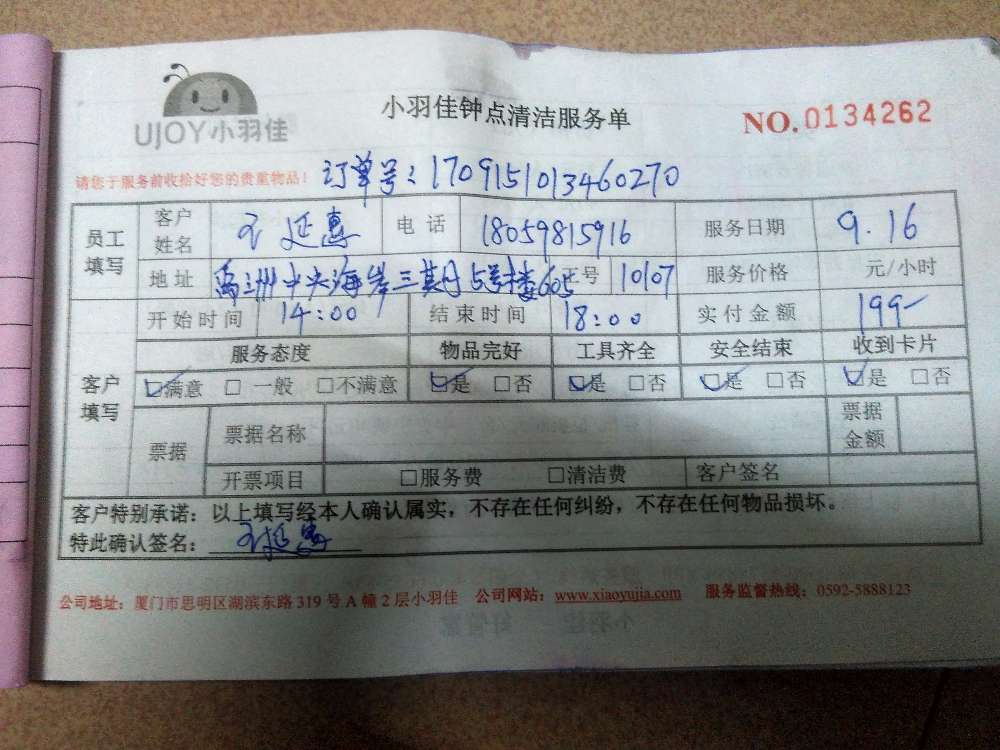 UJOY小羽佳
小羽佳钟点清洁服务单
NO.0134262
请您于服务前收拾好您的贵重物品！ 订单号：1709151013460270
员工填写 客户姓名 王延惠 电话 18059815916 服务日期 9.16
地址 禹洲中央海岸三期5号楼605 号 10107 服务价格 元/小时
客户填写 开始时间 14:00 结束时间 18:00 实付金额 199-
服务态度 物品完好 工具齐全 安全结束 收到卡片
☑满意 □一般 □不满意 ☑是 □否 ☑是 □否 ☑是 □否 ☑是 □否
票据 票据名称 票据金额
开票项目 □服务费 □清洁费 客户签名
客户特别承诺：以上填写经本人确认属实，不存在任何纠纷，不存在任何物品损坏。
特此确认签名：王延惠
公司地址：厦门市思明区湖滨东路319号A幢2层小羽佳 公司网站：www.xiaoyujia.com 服务监督热线：0592-5888123